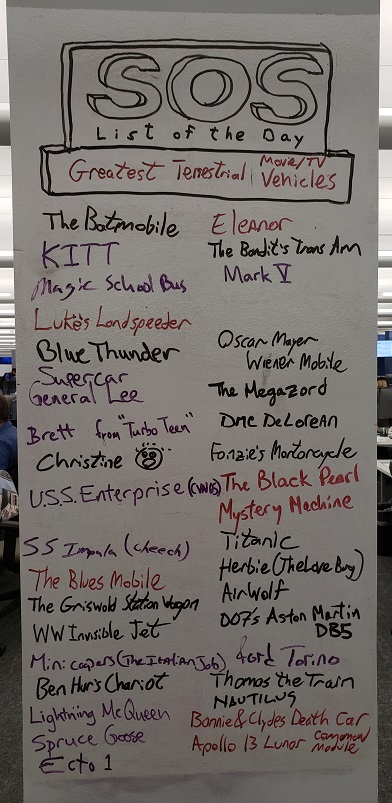 SOS
List of the Day
Greatest Terrestrial Movie/TV Vehicles
The Batmobile
KITT
Magic School Bus
Luke's Landspeeder
Blue Thunder
Supercar
General Lee
Brett from "Turbo Teen"
Christine
U.S.S. Enterprise (CVN65)
SS Impala (Cheech)
The Blues Mobile
The Griswold Station Wagon
WW Invisible Jet
Mini coopers (The Italian Job)
Ben Hur's Chariot
Lightning McQueen
Spruce Goose
Ecto 1
Eleanor
The Bandit's Trans Am
Mark V
Oscar Mayer
Wiener Mobile
The Megazord
DMC DeLorean
Fonzie's Mortorcycle
The Black Pearl
Mystery Machine
Titanic
Herbie (The Love Bug)
AirWolf
007's Aston Martin
DB5
Ford Torino
Thomas the Train
NAUTILUS
Bonnie & Clydes Death Car
Apollo 13 Lunor Command
Module